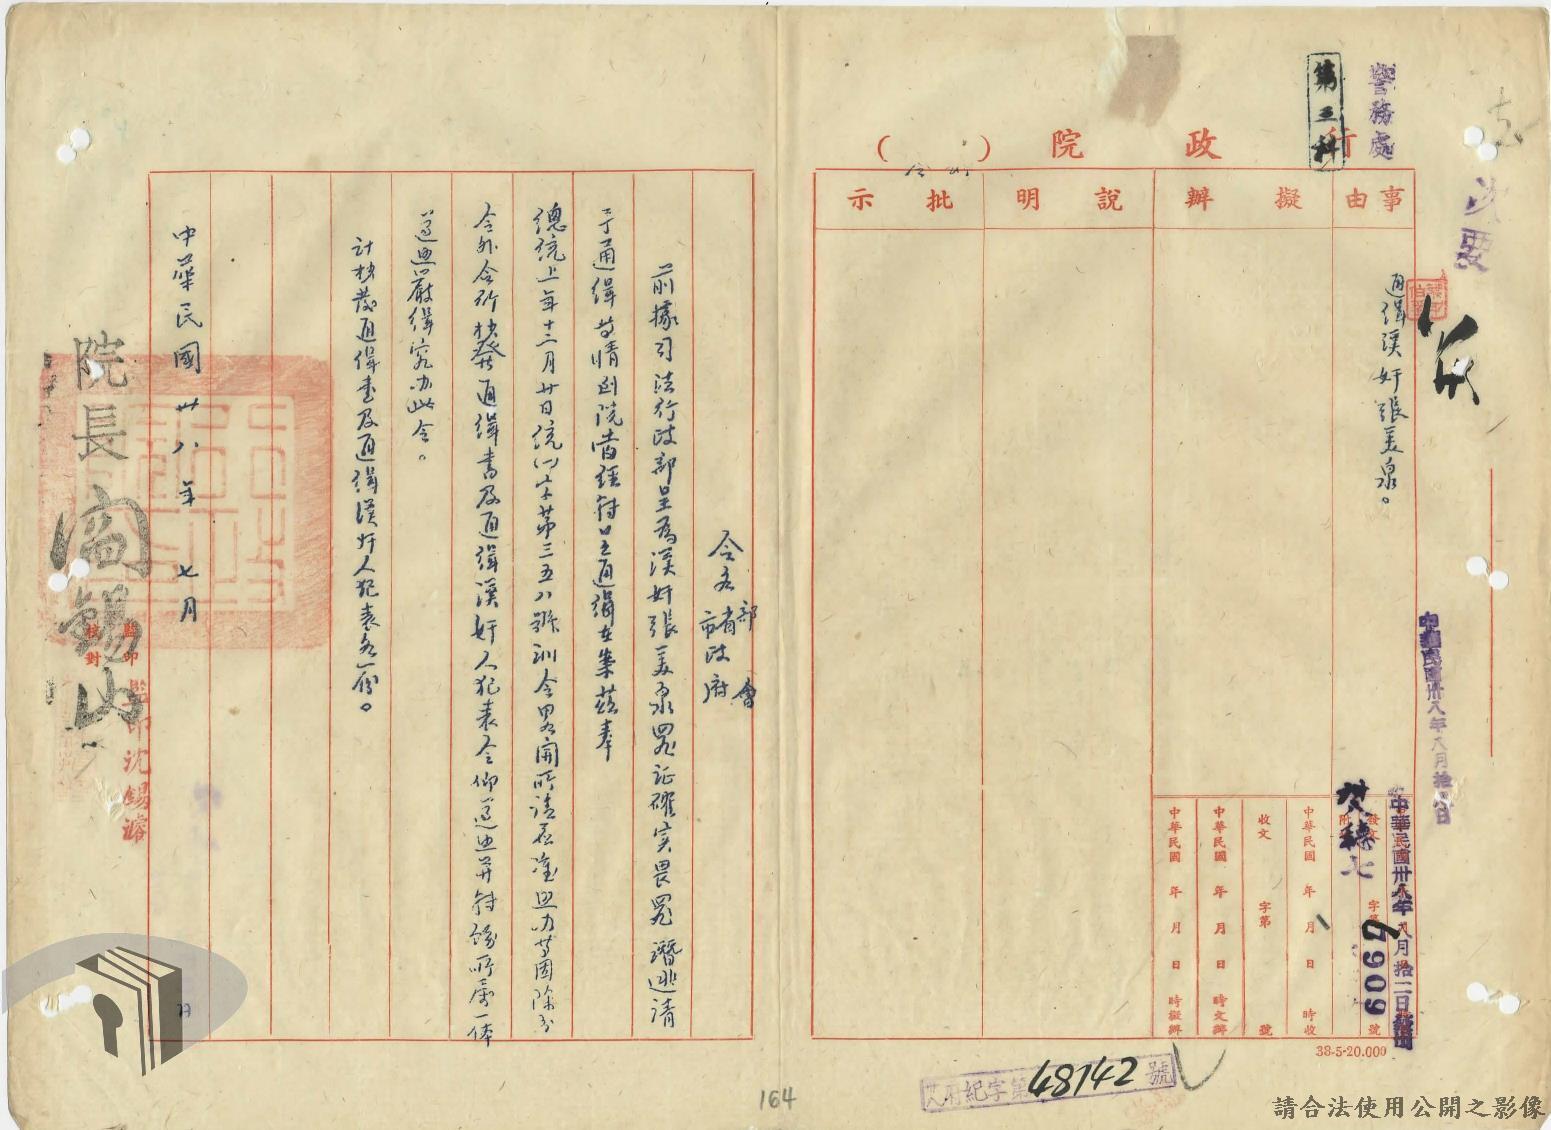 警務處
第三科
行政院( 令 )
事由
擬辦
說明
批示
通緝漢奸張美泉。
中華民國卅八年八月拾二日
6069
發文 字第 號
附
中華民國 年 月 日 時收
收文 字第 號
中華民國 年 月 日 時交辦
中華民國 年 月 日 時擬辦
38-5-20.000
令各部會省市政府
前據司法行政部呈為漢奸張美泉罪証確實畏罪潛逃請
予通緝等情到院當經轉呈通緝在案茲奉
總統上年十二月廿日統(一)字第三五八號訓令畧開所請應准照办等因除分
令外合行抄發通緝書及通緝漢奸人犯表令仰遵照并轉飭所屬一体
遵照嚴緝究办此令。
計抄發通緝書及通緝漢奸人犯表各一份。
中華民國卅八年七月 日
院長閻錫山
監印沈錫濬
監印
校對
字第48142號
164
請合法使用公開之影像